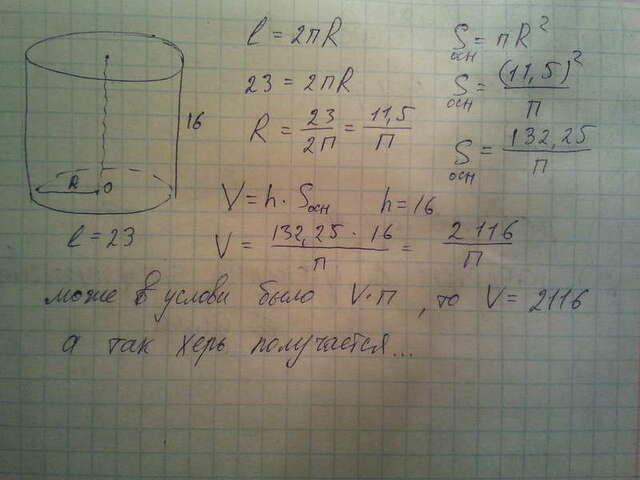 16
R O
l = 23
l = 2пR
23 = 2пR
R = 23/2п = 11,5/п
Sосн = пR²
Sосн = (11,5)²/п
Sосн = 132,25/п
V = h · Sосн h = 16
V = 132,25 · 16/п = 2 116/п
може в услови было V·п, то V = 2116
а так херь получается...